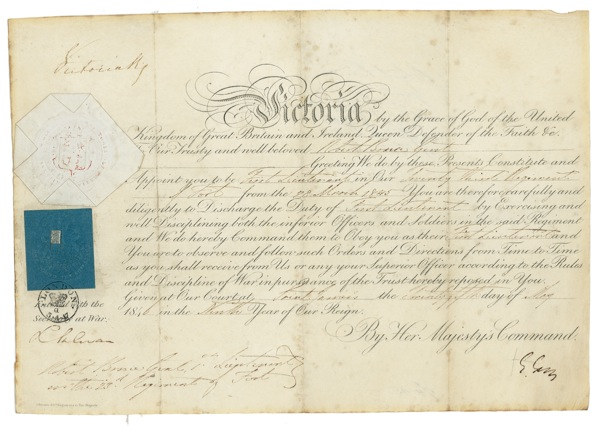 Victoria R
Victoria by the Grace of God of the United
Kingdom of Great Britain and Ireland, Queen Defender of the Faith &c.
Our Trusty and well beloved Robert Bruce Gent
Greeting We do by these Presents Constitute and
Appoint you to be First Lieutenant in Our Twenty Third Regiment
of Foot from the March 1845 You are therefore carefully and
diligently to Discharge the Duty of First Lieutenant by Exercising and
well Disciplining both the inferior Officers and Soldiers in the said Regiment
and We do hereby Command them to Obey you as their First Lieutenant and
You are to observe and follow such Orders and Directions from Time to Time
as you shall receive from Us or any your Superior Officer according to the Rules
and Discipline of War in pursuance of the Trust hereby reposed in You.
Given at Our Court at Saint James's the day of May
1846 in the Ninth Year of Our Reign.
By Her Majesty's Command.
with the
Secretary at War.
Robert Bruce Gent 1st Lieutenant
in the 23rd Regiment of Foot